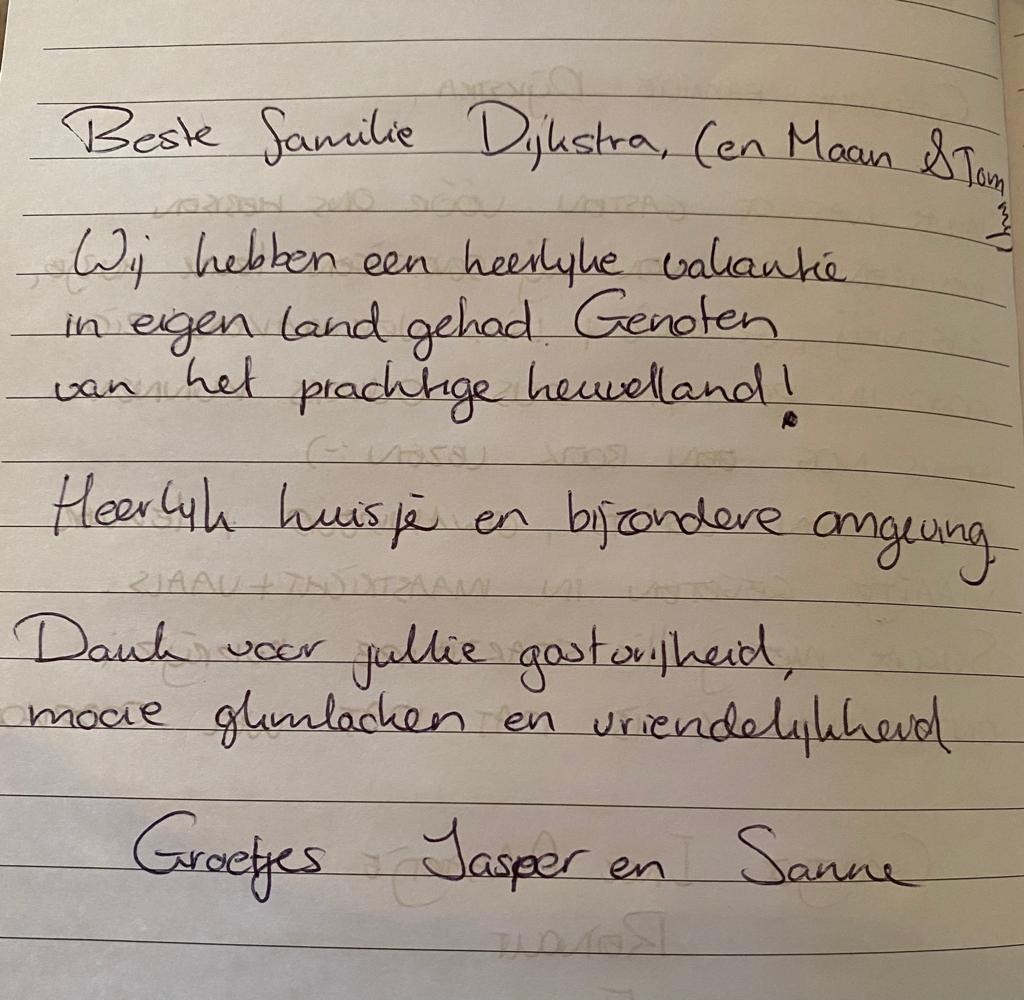 Beste familie Dijkstra, (en Maan & Tom)
Wij hebben een heerlijke vakantie
in eigen land gehad. Genoten
van het prachtige heuvelland!
Heerlijk huisje en bijzondere omgeving
Dank voor jullie gastvrijheid,
mooie glimlachen en vriendelijkheid
Groetjes Jasper en Sanne